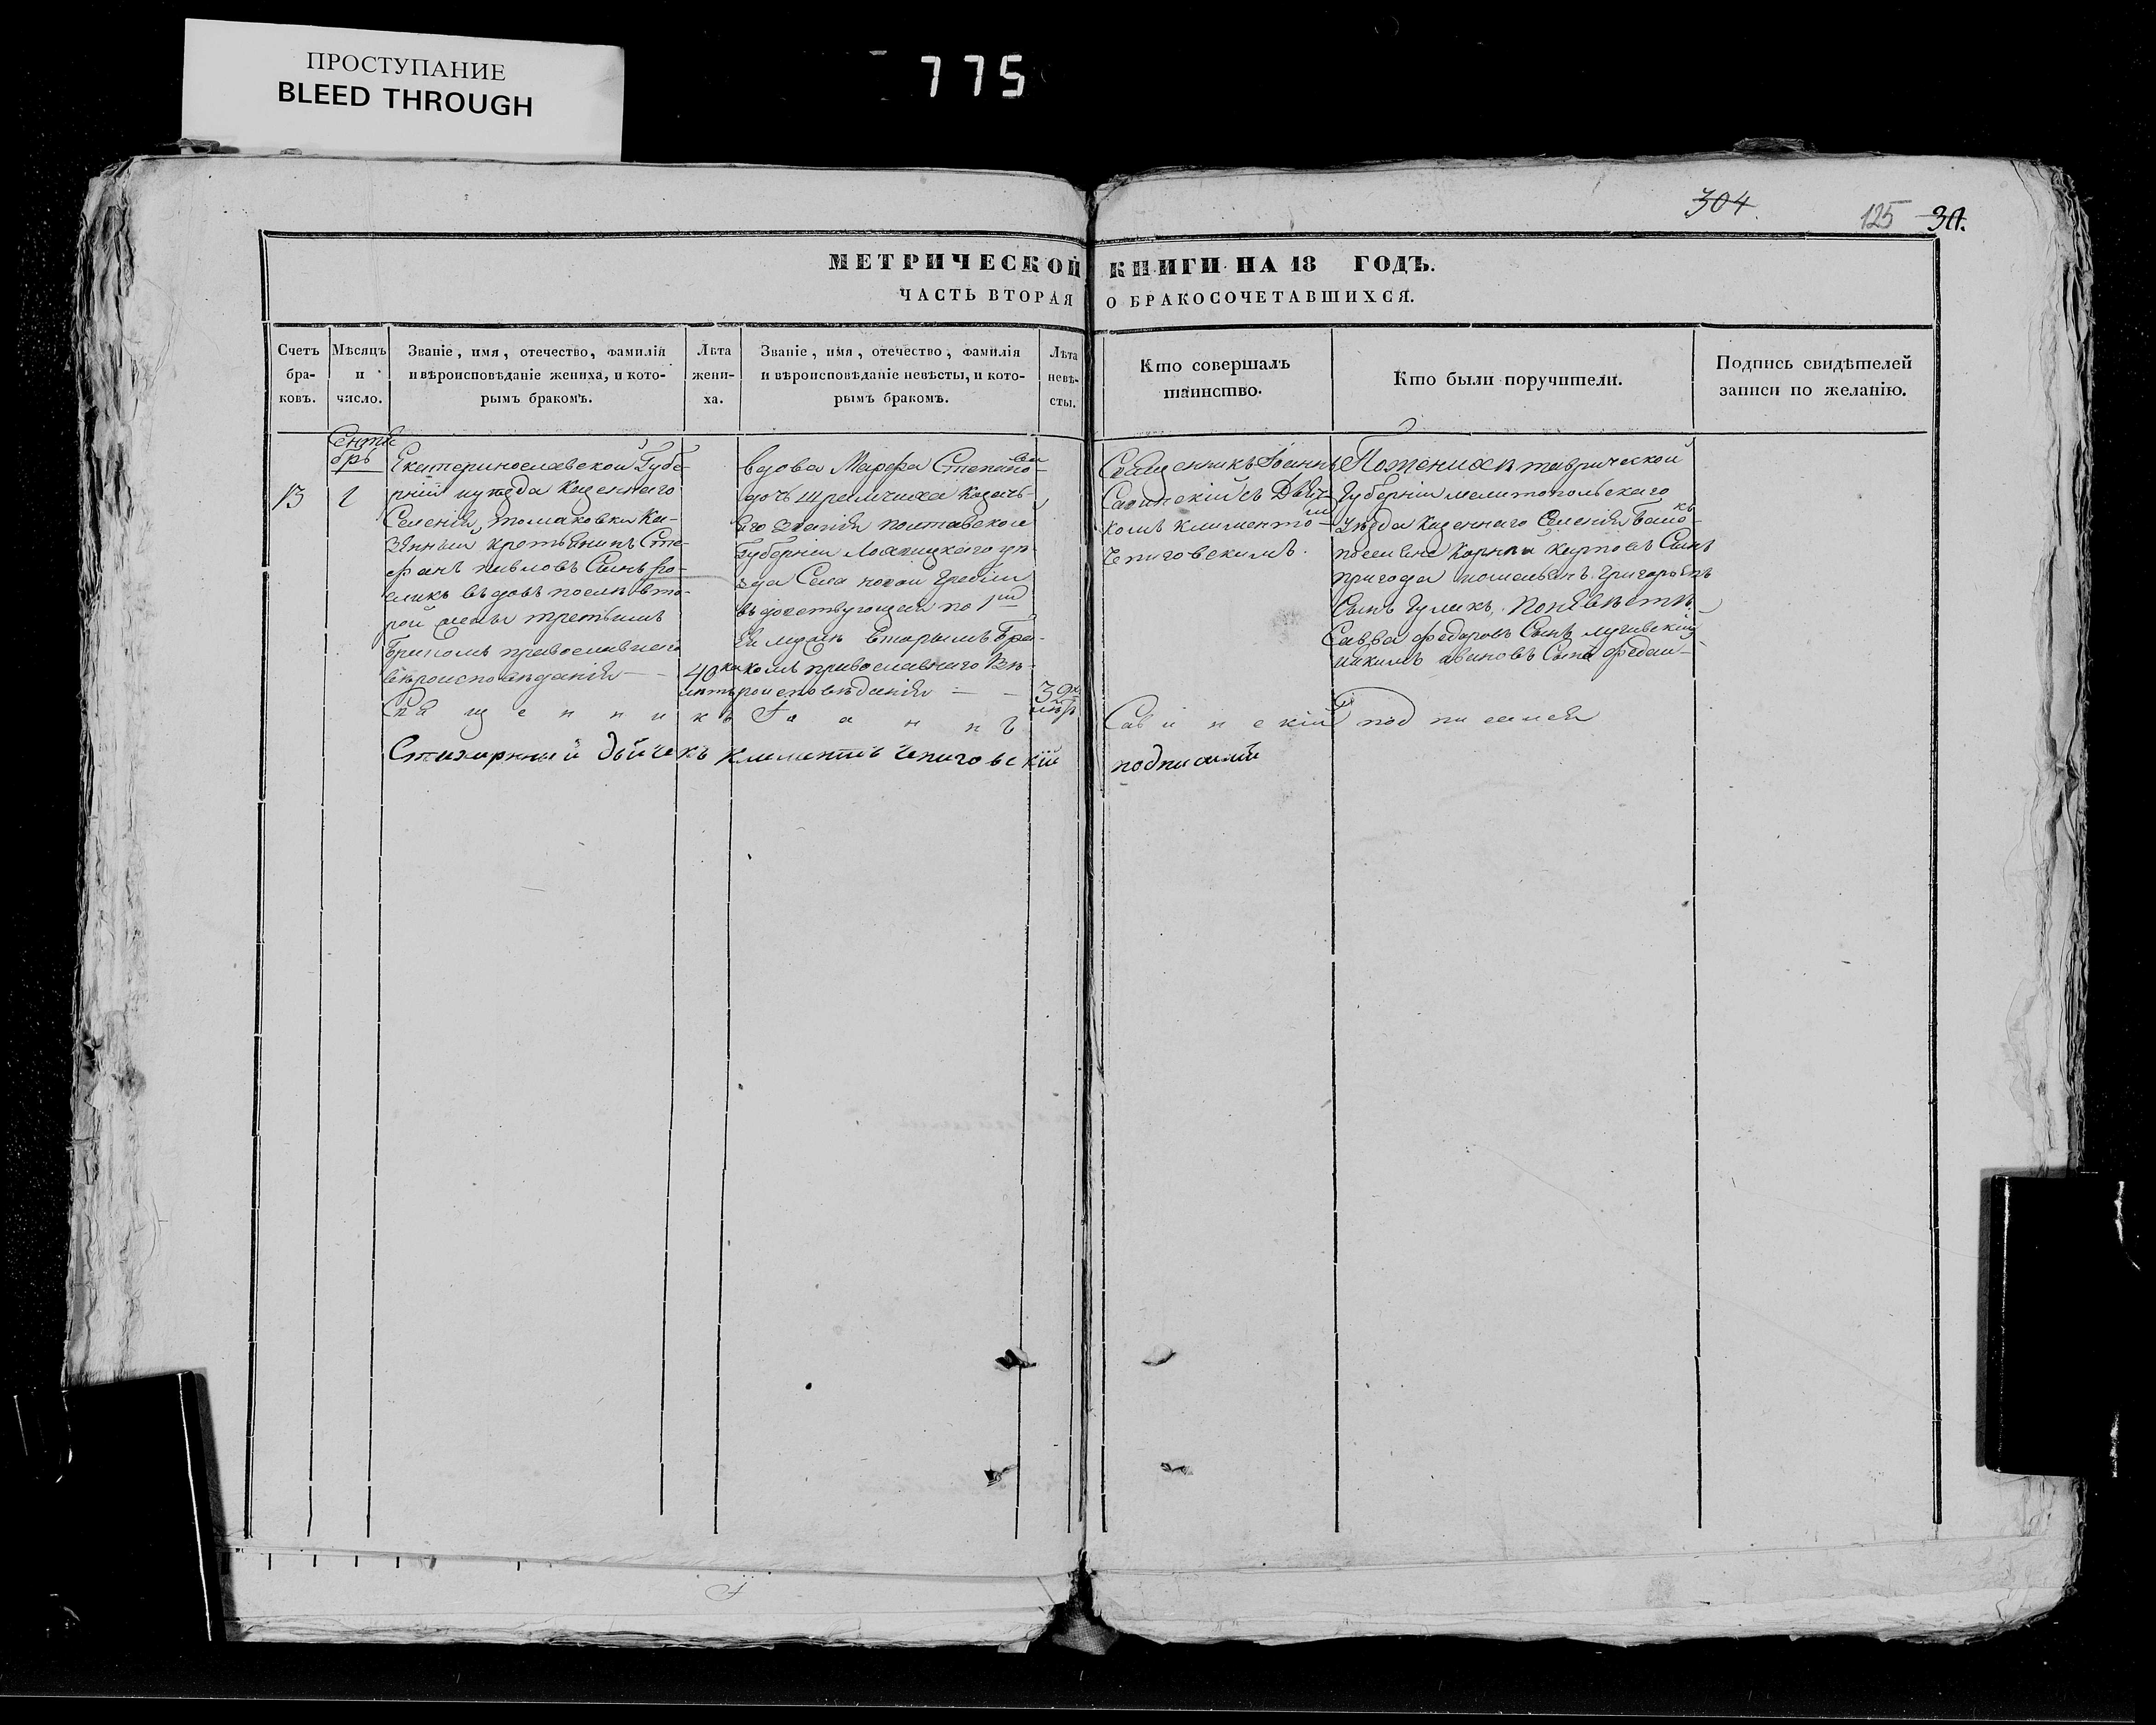 ПРОСТУПАНИЕ
BLEED THROUGH
775
304.
125
МЕТРИЧЕСКОЙ КНИГИ НА 18 ГОДЪ.
ЧАСТЬ ВТОРАЯ О БРАКОСОЧЕТАВШИХСЯ.
Счетъ бра-ковъ.
Мѣсяцъ и число.
Званіе, имя, отечество, фамилія
и вѣроисповѣданіе жениха, и кото-
рымъ бракомъ.
Лѣта жени-ха.
Званіе, имя, отечество, фамилія
и вѣроисповѣданіе невѣсты, и кото-
рымъ бракомъ.
Лѣта невѣ-сты.
Кто совершалъ
таинство.
Кто были поручители.
Подпись свидѣтелей
записи по желанію.
Сентя
брь
13
Екатеринославской Губе-
рніи казеннаго
Селенія, томаковки Ка-
зѣнный Сте-
фанъ павловъ Сынъ
вдовъ послѣ вто-
рой жены третьимъ
бракомъ православнаго
вѣроисповѣданія
40
лѣтъ
вдова Марфа Степано-
ва
дочь казачь-
яго званія полтавской
Губерніи уѣ-
зда Села новой Гребли
вдовствующая по 1мъ
Ея мужѣ вторымъ бра-
комъ православнаго Вѣ-
роисповѣданія
лѣтъ
Священникъ Іоаннъ
Савинскій съ Дьяч-
комъ Климентіо-
мъ
Чепиговскимъ.
По женихѣ таврической
Губерніи мелитопольскаго
уѣзда казеннаго Селенія
Корній карповъ Сынъ
пригода Григорьевъ
Сынъ Гулакъ, По невѣстѣ
Савва федоровъ Сынъ
Сынъ
Священникъ Іоаннъ Савинскій подписался
Стихарный дьячекъ Климентій Чепиговскій подписался